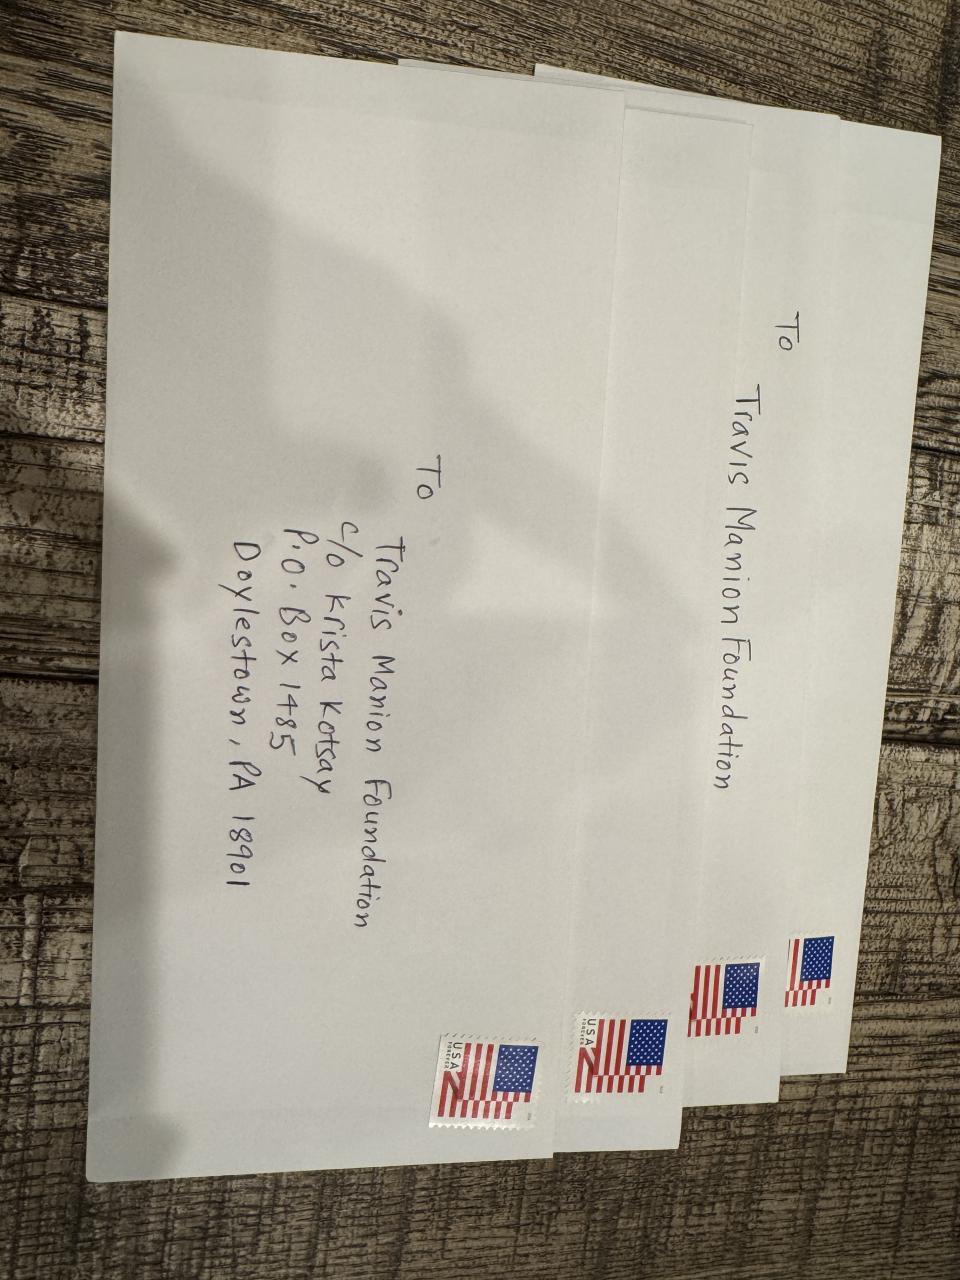 To
Travis Manion Foundation
To
Travis Manion Foundation
c/o Krista Kotsay
P.O. Box 1485
Doylestown, PA 18901
USA
FOREVER
USA
FOREVER